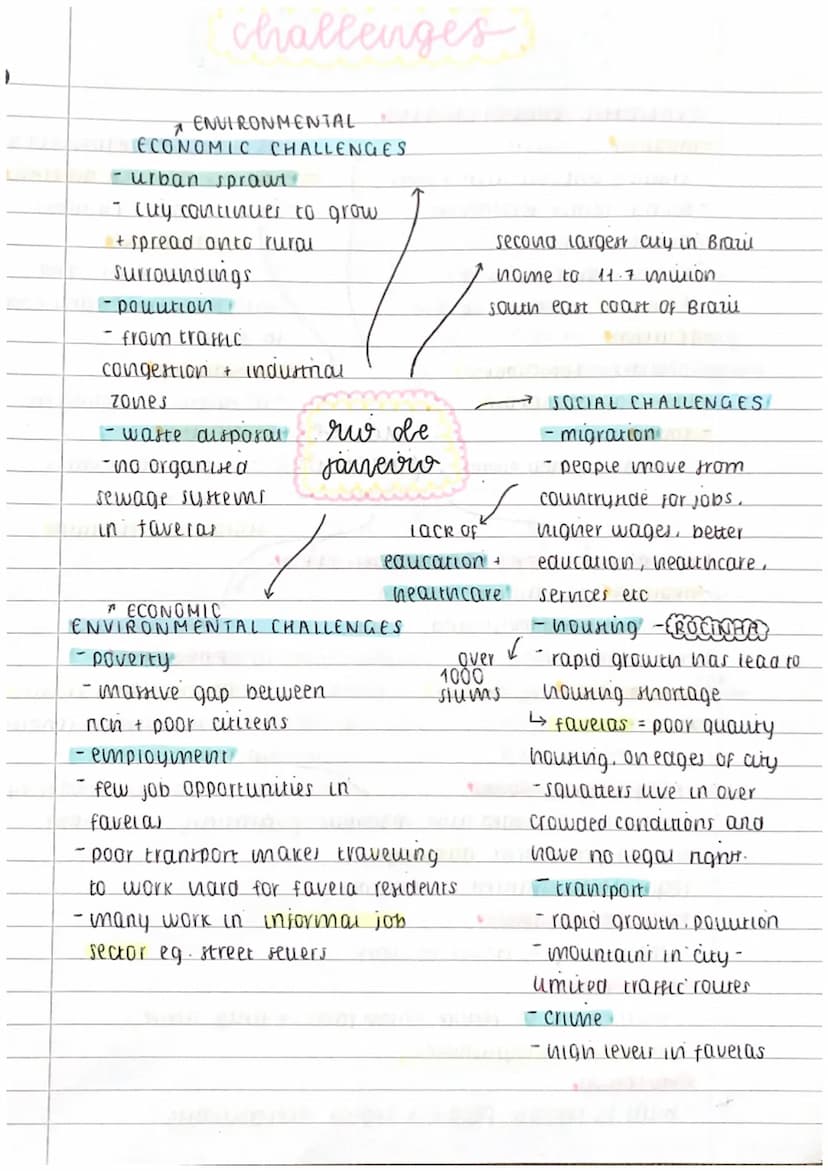 challenges
↗ ENVIRONMENTAL
ECONOMIC CHALLENGES
- urban sprawl
- city continues to grow
+ spread onto rural
surroundings
- pollution
- from traffic
congestion + industrial
zones
- waste disposal
- no organised
sewage systems
in favelas
second largest city in Brazil
home to 11.7 million
south east coast of Brazil
rio de
janeiro
SOCIAL CHALLENGES
- migration
- people move from
countryside for jobs,
higher wages, better
education, healthcare,
services etc
lack of
education +
healthcare
- housing - ROCINHA
over
1000
slums
- rapid growth has lead to
housing shortage
↳ favelas = poor quality
housing, on edges of city
- squatters live in over
crowded conditions and
have no legal right.
- transport
- rapid growth, pollution
- mountains in city -
limited traffic routes
- crime
- high levels in favelas
↗ ECONOMIC
ENVIRONMENTAL CHALLENGES
- poverty
- massive gap between
rich + poor citizens
- employment
- few job opportunities in
favelas
- poor transport makes travelling
to work hard for favela residents
- many work in informal job
sector eg. street sellers